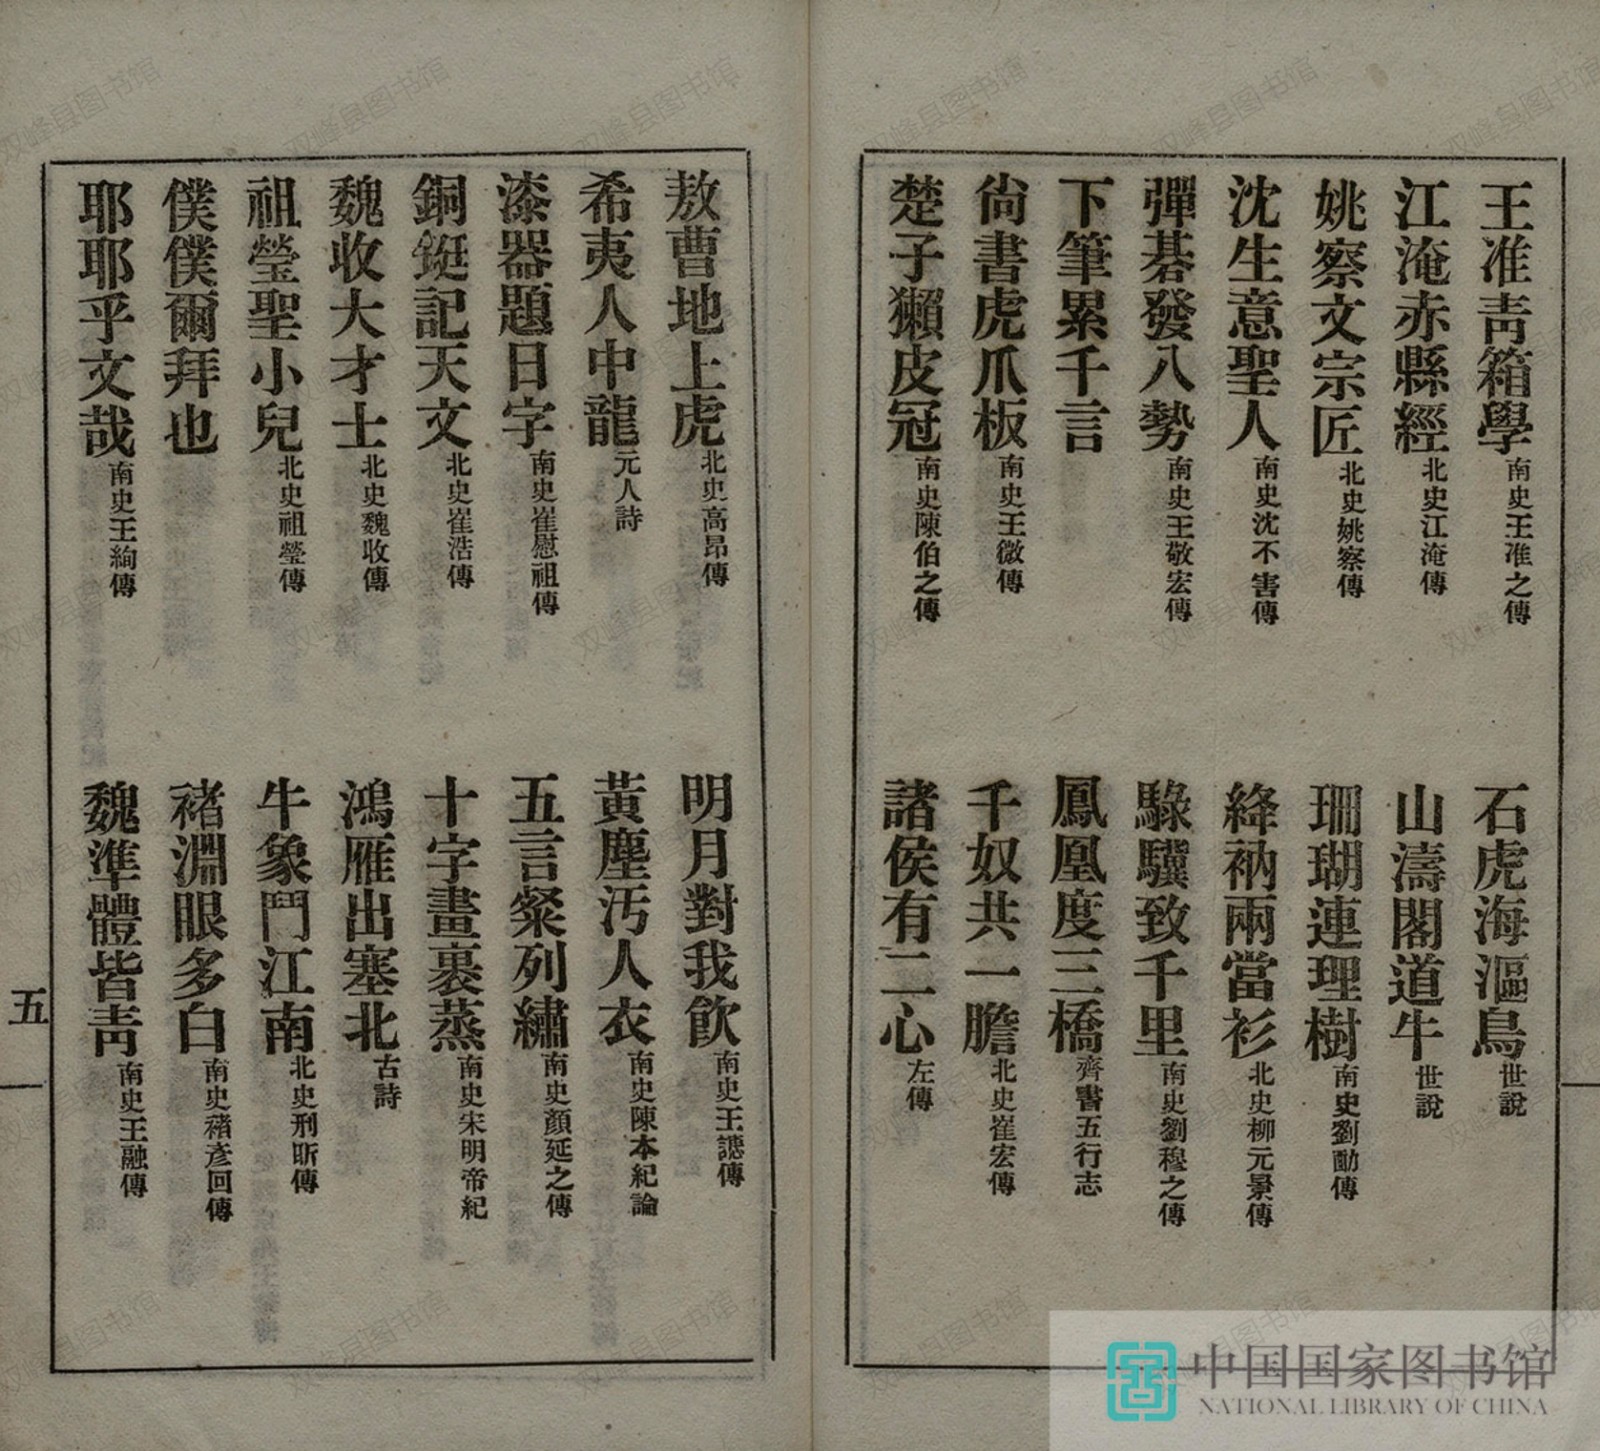 王准靑箱學 南史王准之傳 石虎海漚鳥 世說
江淹赤縣經 北史江淹傳 山濤閣道牛 世說
姚察文宗匠 北史姚察傳 珊瑚連理樹 南史劉勔傳
沈生意聖人 南史沈不害傳 絳衲兩當衫 北史柳元景傳
彈碁發八勢 南史王敬宏傳 騄驥致千里 南史劉穆之傳
下筆累千言 鳳凰度三橋 齊書五行志
尙書虎爪板 南史王微傳 千奴共一膽 北史崔宏傳
楚子獺皮冠 南史陳伯之傳 諸侯有二心 左傳
敖曹地上虎 北史高昂傳 明月對我飮 南史王譓傳
希夷人中龍 元人詩 黃塵汚人衣 南史陳本紀論
漆器題日字 南史崔慰祖傳 五言粲列繡 南史顏延之傳
銅鋌記天文 北史崔浩傳 十字畫裹蒸 南史宋明帝紀
魏收大才士 北史魏收傳 鴻雁出塞北 古詩
祖瑩聖小兒 北史祖瑩傳 牛象鬥江南 北史刑昕傳
僕僕爾拜也 褚淵眼多白 南史褚彥回傳
耶耶乎文哉 南史王絢傳 魏準體皆靑 南史王融傳
五
中国国家图书馆
NATIONAL LIBRARY OF CHINA
双峰县图书馆